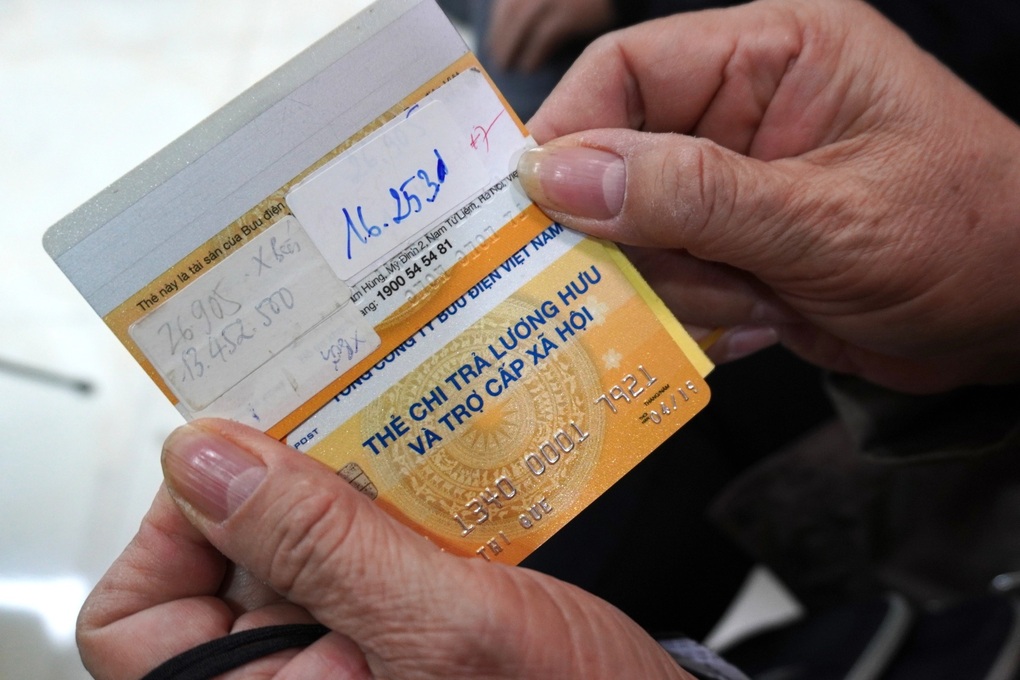 Thẻ này là tài sản của Bưu điện
16.253đ
+7
26.905 X Bến
13.452.500
Hùng, Mỹ Đình 2, Nam Từ Liêm, Hà Nội, Việ
ang: 1900 54 54 81
0707 0707
TỔNG CÔNG TY BƯU ĐIỆN VIỆT NAM
POST
THẺ CHI TRẢ LƯƠNG HƯU
VÀ TRỢ CẤP XÃ HỘI
1340 0001 7921
04/15
THI QUE